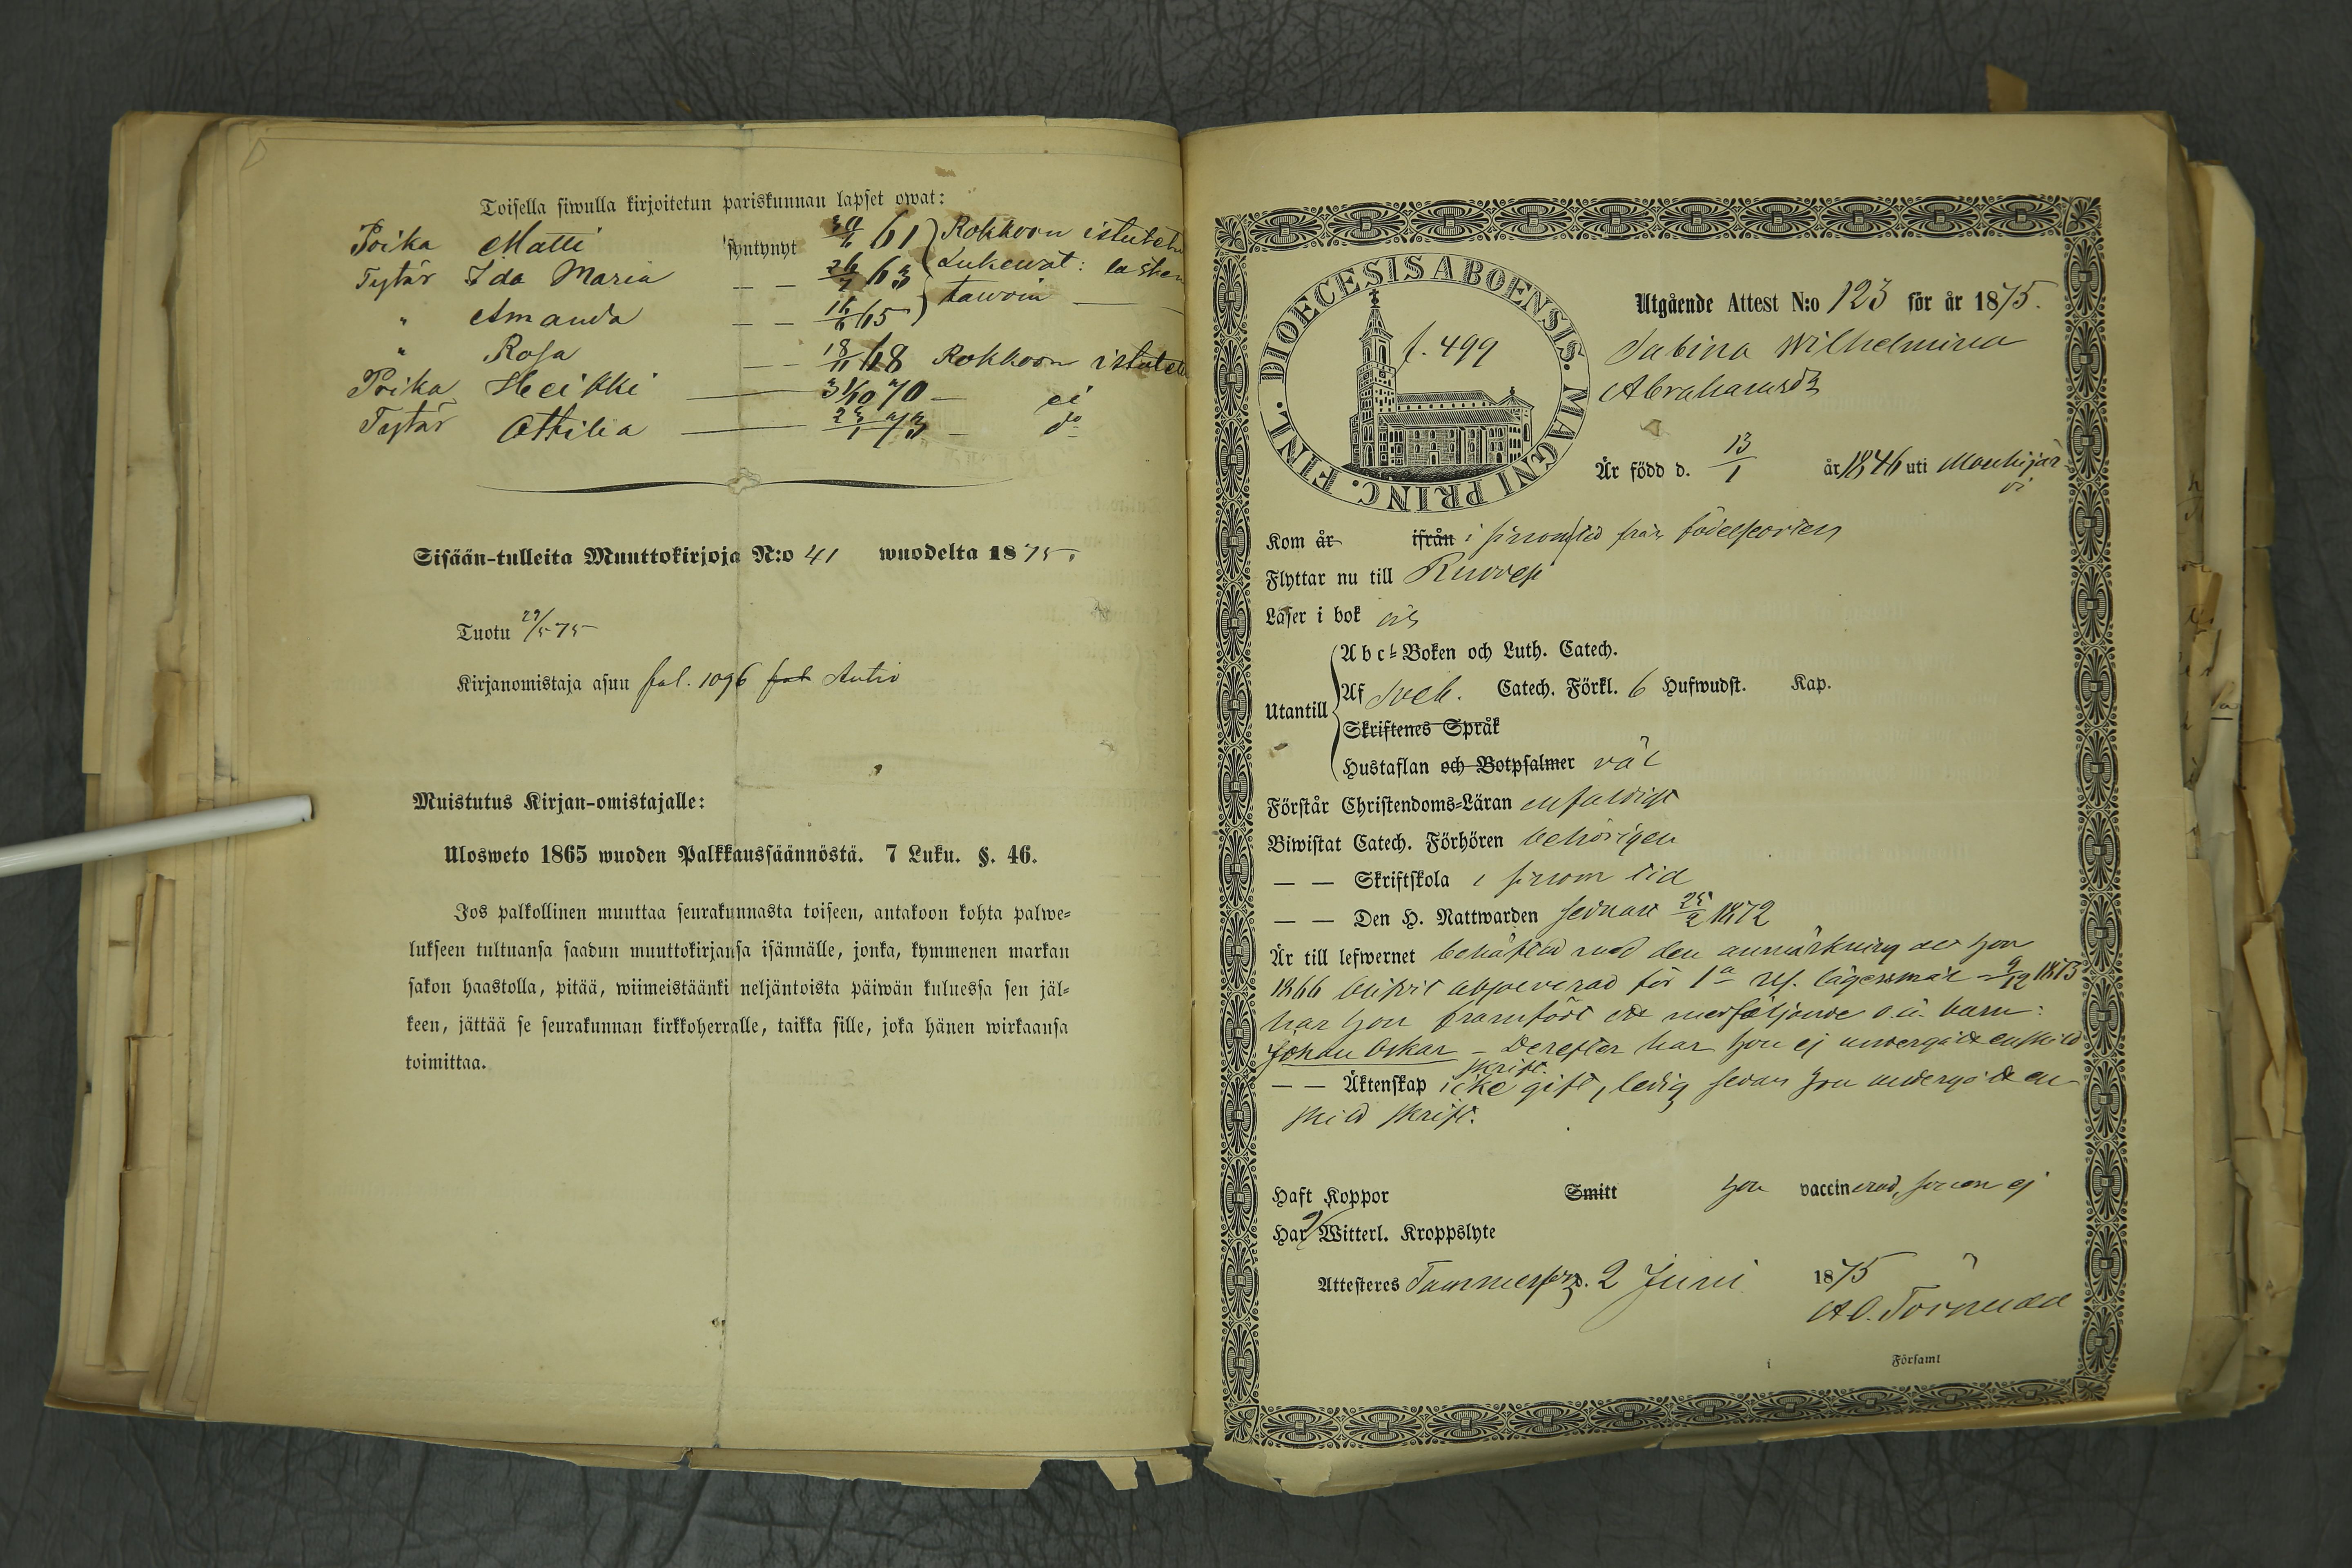 Toisella siwulla kirjoitetun pariskunnan lapset owat:
Poika Matti syntynyt 61 Rokkoon istutetu
Tytär Ida Maria — — 63 Lukewat: lasten
" Amanda — — 65 tawoin —
" Rosa — — 18/11 68 Rokkoon istutet
Poika Heikki — 31/10 70 — ei
Tytär Ottilia — 23/1 73 — do
Sisään-tulleita Muuttokirjoja N:o 41 wuodelta 1875.
Tuotu 29/5 75
Kirjanomistaja asuu fol. 1096 Autio
Muistutus Kirjan-omistajalle:
Ulosweto 1865 wuoden Palkkaussäännöstä. 7 Luku. §. 46.
Jos palkollinen muuttaa seurakunnasta toiseen, antakoon kohta palwe=
lukseen tultuansa saadun muuttokirjansa isännälle, jonka, kymmenen markan
sakon haastolla, pitää, wiimeistäänki neljäntoista päiwän kuluessa sen jäl=
keen, jättää se seurakunnan kirkkoherralle, taikka sille, joka hänen wirkaansa
toimittaa.
DIOECESIS ABOENSIS. MAGNI PRINC. FINL.
f. 499
Utgående Attest N:o 123 för år 1875.
Sabina Wilhelmina
Abrahamsdr
Är född d. 13/1 år 1846 uti Mouhijär
vi
Kom år ifrån i sinom tid från födelseorten
Flyttar nu till Ruovesi
Läser i bok
Utantill
Abc=Boken och Luth. Catech.
Af Sveb. Catech. Förkl. 6 Hufwudst. Kap.
Skriftenes Språk
Hustaflan och Botpsalmer väl
Förstår Christendoms=Läran enfaldigt
Biwistat Catech. Förhören behörigen
— — Skriftskola i sinom tid
— — Den H. Nattwarden sednast 25/2 1872
Är till lefwernet behäftad med den anmärkning att hon
1866 blifvit absolverad för 1a res. lägersmål - 9/12 1873
har hon framfödt ett medföljande o.ä. barn:
Johan Oskar - Derefter har hon ej undergått enskild
skrift.
— — Äktenskap icke gift, ledig sedan hon undergått en-
skild skrift.
Haft Koppor Smitt hon vaccinerad, sonen ej
Har Witterl. Kroppslyte
Attesteres Tammerfors d. 2 Juni 1875
A O. Törnudd
i Församl